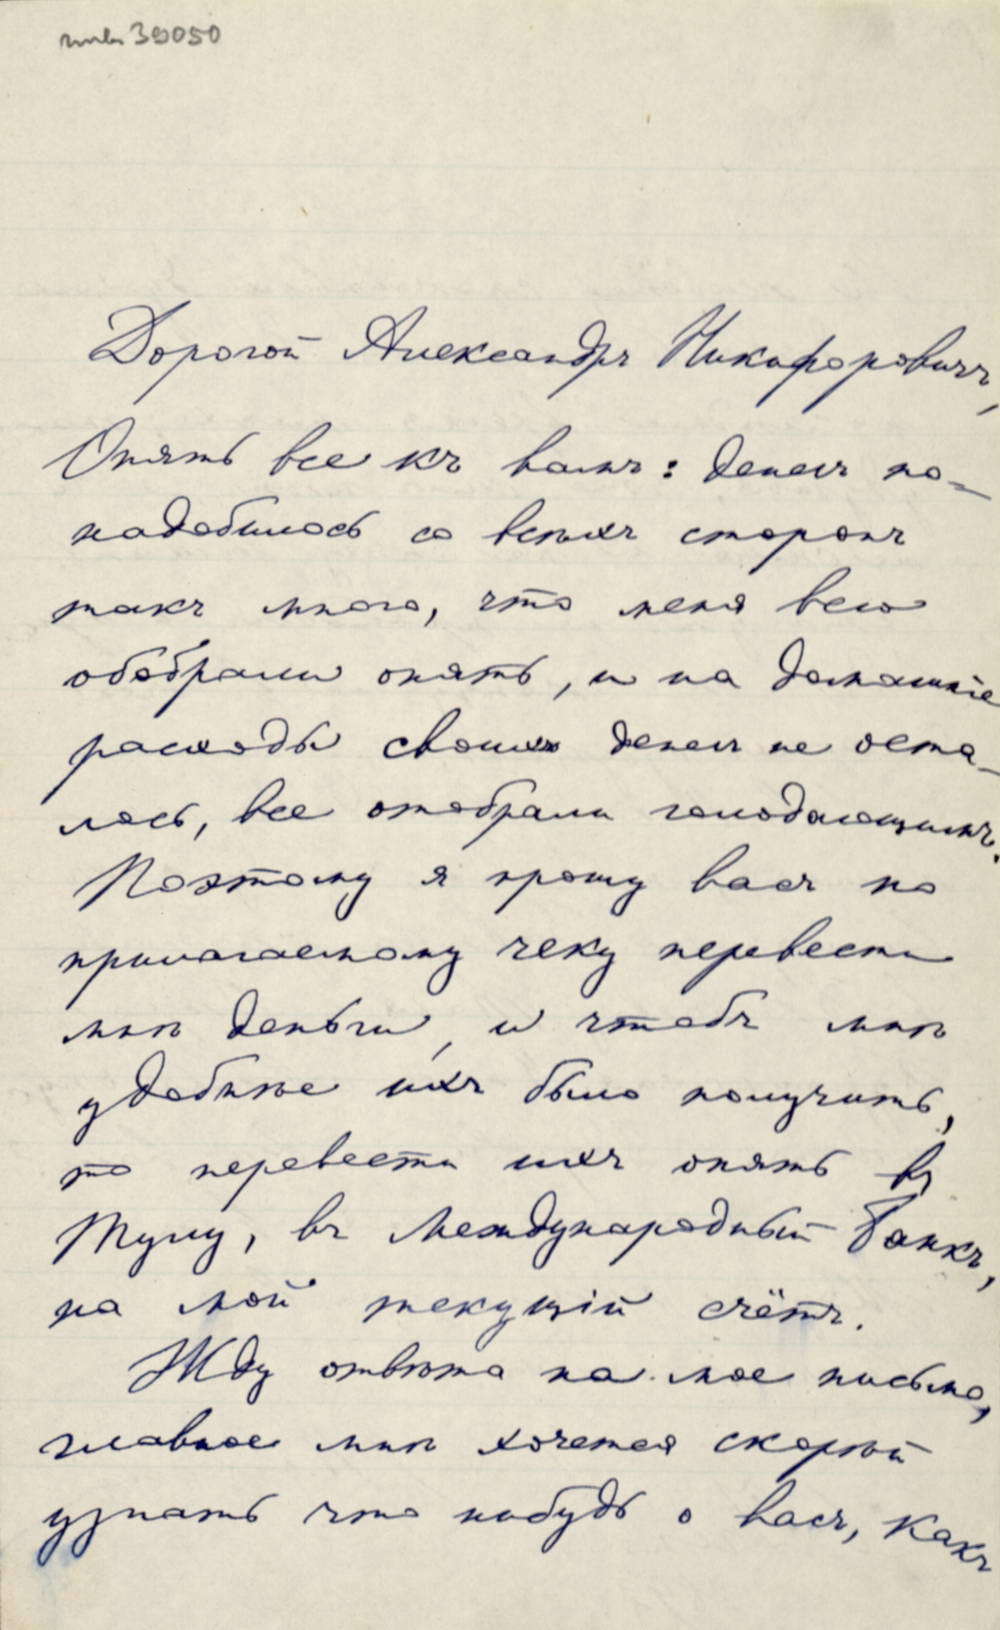 39050
Дорогой Александръ Никифоровичъ,
Опять все къ вамъ: денегъ по-
надобилось со всѣхъ сторонъ
такъ много, что меня всю
обобрали опять, и на домашніе
расходы своихъ денегъ не оста-
лось, все отобрали голодающимъ.
Поэтому я прошу васъ по
прилагаемому чеку перевести
мнѣ деньги, и чтобъ мнѣ
удобнѣе ихъ было получить,
то перевести ихъ опять въ
Тулу, въ Международный банкъ,
на мой текущій счётъ.
Жду отвѣта на мое письмо,
главное мнѣ хочется скорѣй
узнать что нибудь о васъ, какъ